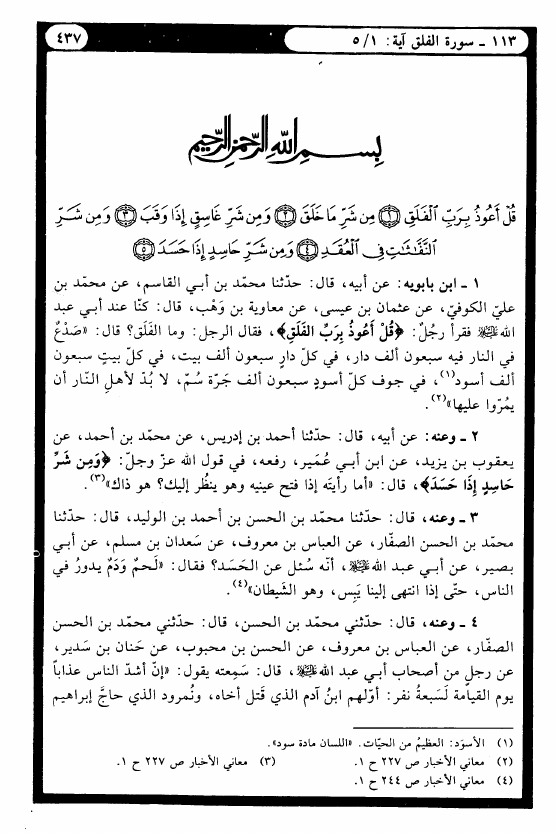 ١١٣ ـ سورة الفلق آية: ١/ ٥
٤٣٧
بِسْمِ اللهِ الرَّحْمٰنِ الرَّحِيمِ
قُلْ أَعُوذُ بِرَبِّ الْفَلَقِ ﴿١﴾ مِن شَرِّ مَا خَلَقَ ﴿٢﴾ وَمِن شَرِّ غَاسِقٍ إِذَا وَقَبَ ﴿٣﴾ وَمِن شَرِّ
النَّفَّاثَاتِ فِي الْعُقَدِ ﴿٤﴾ وَمِن شَرِّ حَاسِدٍ إِذَا حَسَدَ ﴿٥﴾
١ ـ ابن بابويه: عن أبيه، قال: حدّثنا محمّد بن أبي القاسم، عن محمّد بن
عليّ الكوفيّ، عن عثمان بن عيسى، عن معاوية بن وَهْب، قال: كنّا عند أبي عبد
الله عليه السلام فقرأ رجُلٌ: ﴿قُلْ أَعُوذُ بِرَبِّ الفَلَقِ﴾، فقال الرجل: وما الفَلَق؟ قال: «صَدْعٌ
في النار فيه سبعون ألف دار، في كلّ دارٍ سبعون ألف بيت، في كلّ بيتٍ سبعون
ألف أسود(١)، في جوف كلّ أسودٍ سبعون ألف جَرّة سُمّ، لا بُدّ لأهلِ النّار أن
يمُرّوا عليها»(٢).
٢ ـ وعنه: عن أبيه، قال: حدّثنا أحمد بن إدريس، عن محمّد بن أحمد، عن
يعقوب بن يزيد، عن ابن أبي عُمَير، رفعه، في قول الله عزّ وجلّ: ﴿وَمِن شَرِّ
حَاسِدٍ إِذَا حَسَدَ﴾، قال: «أما رأيتَه إذا فتح عينيه وهو ينظُر إليك؟ هو ذاك»(٣).
٣ ـ وعنه، قال: حدّثنا محمّد بن الحسن بن أحمد بن الوليد، قال: حدّثنا
محمّد بن الحسن الصفّار، عن العباس بن معروف، عن سَعدان بن مسلم، عن أبي
بصير، عن أبي عبد الله عليه السلام، أنّه سُئل عن الحَسَد؟ فقال: «لَحمٌ ودَمٌ يدورُ في
الناس، حتّى إذا انتهى إلينا يَبِس، وهو الشَيطان»(٤).
٤ ـ وعنه، قال: حدّثني محمّد بن الحسن، قال: حدّثني محمّد بن الحسن
الصفّار، عن العباس بن معروف، عن الحسن بن محبوب، عن حَنان بن سَدير،
عن رجلٍ من أصحاب أبي عبد الله عليه السلام، قال: سَمِعته يقول: «إنّ أشدّ الناس عذاباً
يوم القيامة لَسبعةُ نفر: أوّلهم ابنُ آدم الذي قَتل أخاه، ونُمرود الذي حاجَّ إبراهيم
(١) الأسوَد: العظيمُ من الحيّات. «اللسان مادة سود».
(٢) معاني الأخبار ص ٢٢٧ ح ١. (٣) معاني الأخبار ص ٢٢٧ ح ١.
(٤) معاني الأخبار ص ٢٤٤ ح ١.